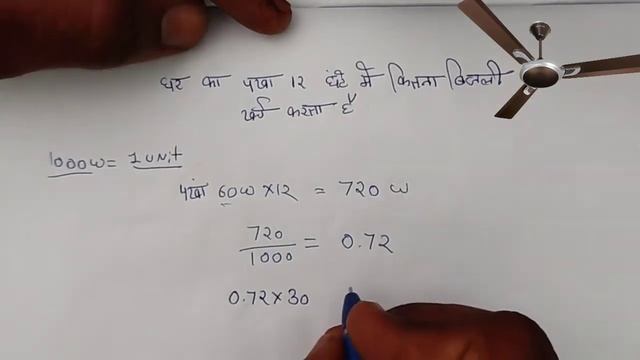 घर का पंखा 12 घंटे में कितना बिजली
खर्च करता है
1000W = 1 Unit
पंखा 60W × 12 = 720 W
720
1000 = 0.72
0.72 × 30